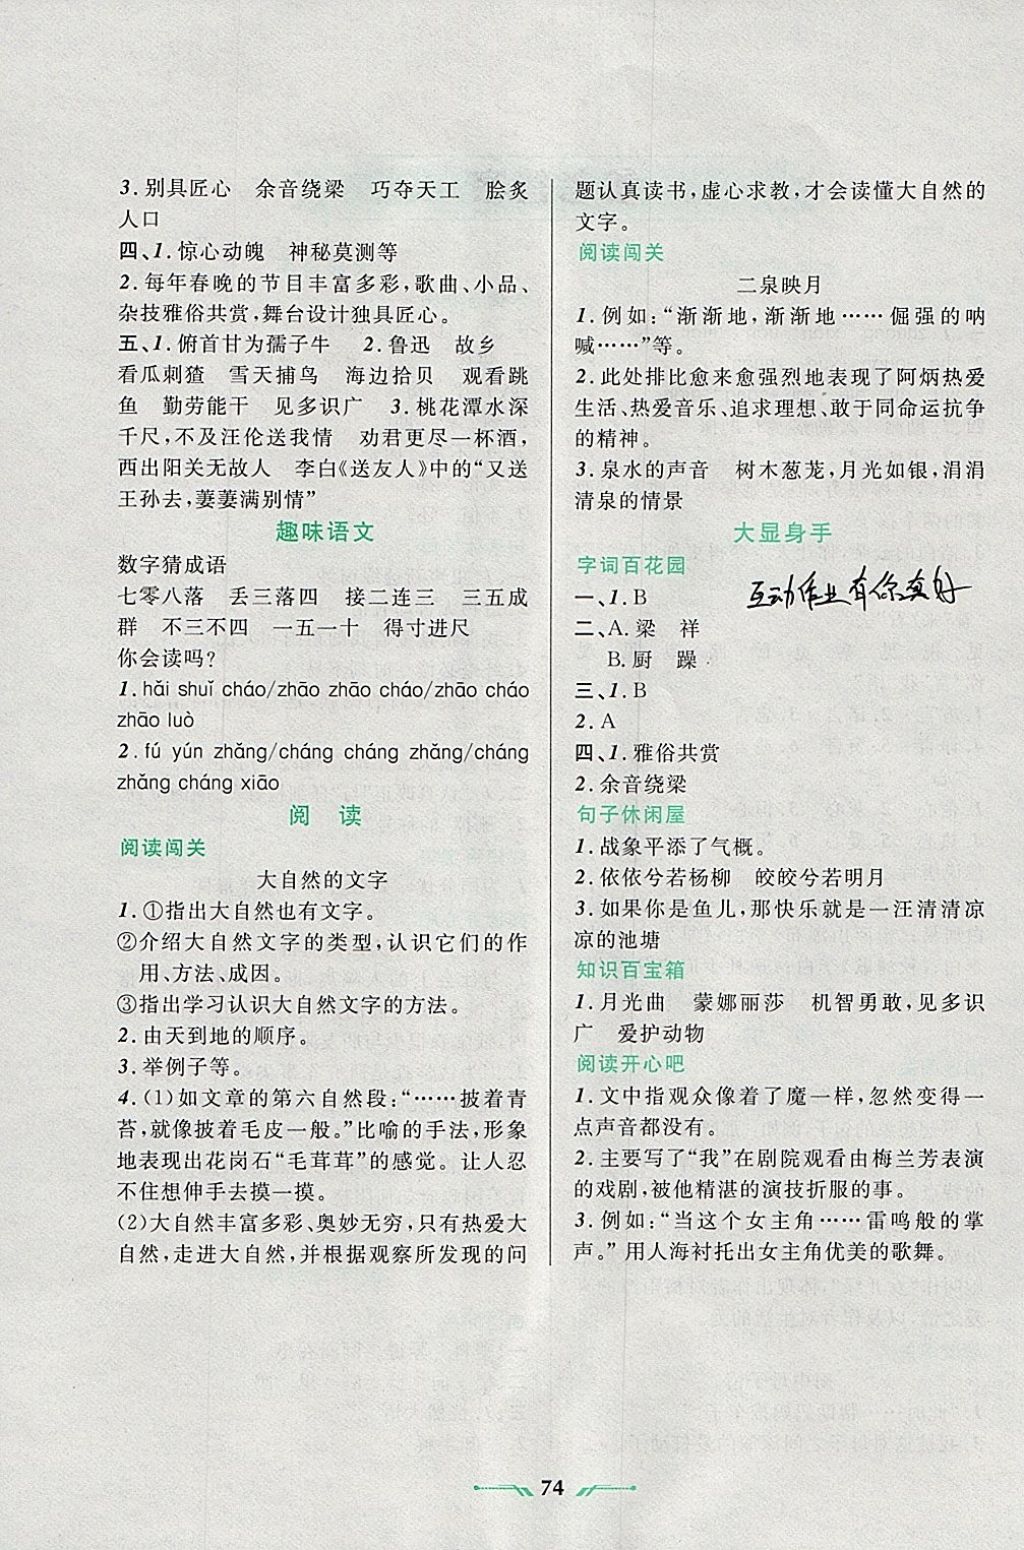 3. 别具匠心　余音绕梁　巧夺天工　脍炙
人口
四、1. 惊心动魄　神秘莫测等
2. 每年春晚的节目丰富多彩,歌曲、小品、
杂技雅俗共赏,舞台设计独具匠心。
五、1. 俯首甘为孺子牛　2. 鲁迅　故乡
看瓜刺猹　雪天捕鸟　海边拾贝　观看跳
鱼　勤劳能干　见多识广　3. 桃花潭水深
千尺,不及汪伦送我情　劝君更尽一杯酒,
西出阳关无故人　李白《送友人》中的“又送
王孙去,萋萋满别情”
趣味语文
数字猜成语
七零八落　丢三落四　接二连三　三五成
群　不三不四　一五一十　得寸进尺
你会读吗?
1. hǎi shuǐ cháo/zhāo zhāo cháo/zhāo cháo
zhāo luò
2. fú yún zhǎng/cháng cháng zhǎng/cháng
zhǎng cháng xiāo
阅　读
阅读闯关
大自然的文字
1. ①指出大自然也有文字。
②介绍大自然文字的类型,认识它们的作
用、方法、成因。
③指出学习认识大自然文字的方法。
2. 由天到地的顺序。
3. 举例子等。
4. (1)如文章的第六自然段:“……披着青
苔,就像披着毛皮一般。”比喻的手法,形象
地表现出花岗石“毛茸茸”的感觉。让人忍
不住想伸手去摸一摸。
(2)大自然丰富多彩、奥妙无穷,只有热爱大
自然,走进大自然,并根据观察所发现的问
题认真读书,虚心求教,才会读懂大自然的
文字。
阅读闯关
二泉映月
1. 例如:“渐渐地,渐渐地……倔强的呐
喊……”等。
2. 此处排比愈来愈强烈地表现了阿炳热爱
生活、热爱音乐、追求理想、敢于同命运抗争
的精神。
3. 泉水的声音　树木葱茏,月光如银,涓涓
清泉的情景
大显身手
字词百花园
互动作业有你真好
一、1. B
二、A. 梁　祥
B. 厨　躁
三、1. B
2. A
四、1. 雅俗共赏
2. 余音绕梁
句子休闲屋
1. 战象平添了气概。
2. 依依兮若杨柳　皎皎兮若明月
3. 如果你是鱼儿,那快乐就是一汪清清凉
凉的池塘
知识百宝箱
1. 月光曲　蒙娜丽莎　机智勇敢,见多识
广　爱护动物
阅读开心吧
1. 文中指观众像着了魔一样,忽然变得一
点声音都没有。
2. 主要写了“我”在剧院观看由梅兰芳表演
的戏剧,被他精湛的演技折服的事。
3. 例如:“当这个女主角……雷鸣般的掌
声。”用人海衬托出女主角优美的歌舞。
74